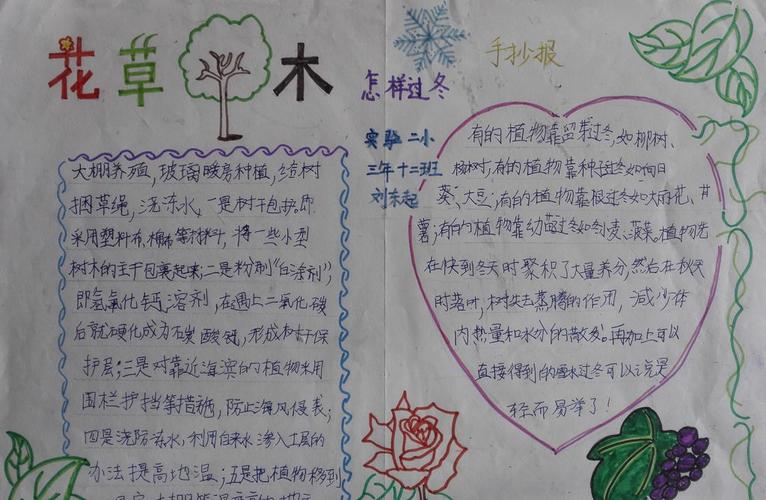 花草木
怎样过冬
手抄报
实验二小
三年十二班
刘东起
大棚养殖,玻璃暖房种植,给树
捆草绳,浇冻水,一是树干包护。即
采用塑料布,棉布等材料,将一些小型
树木的主干包裹起来;二是粉刷“白涂剂”,
即氢氧化钙,溶剂,在遇上二氧化碳
后就硬化成为石炭酸钙,形成树干保
护层;三是对靠近海滨的植物采用
围栏护挡等措施,防止海风侵袭;
四是浇防冻水,利用自来水渗入土层的
办法提高地温;五是把植物移到
有的植物靠留芽过冬,如柳树、
杨树,有的植物靠种子过冬如向日
葵、大豆;有的植物靠根过冬如大丽花、甘
薯;有的植物靠幼苗过冬如冬麦、菠菜。植物先
在快到冬天时聚积了大量养分,然后在秋天
时落叶,树失去蒸腾的作用,减少体
内热量和水分的散发。再加上可以
直接得到的雪水过冬可以说是
轻而易举了!